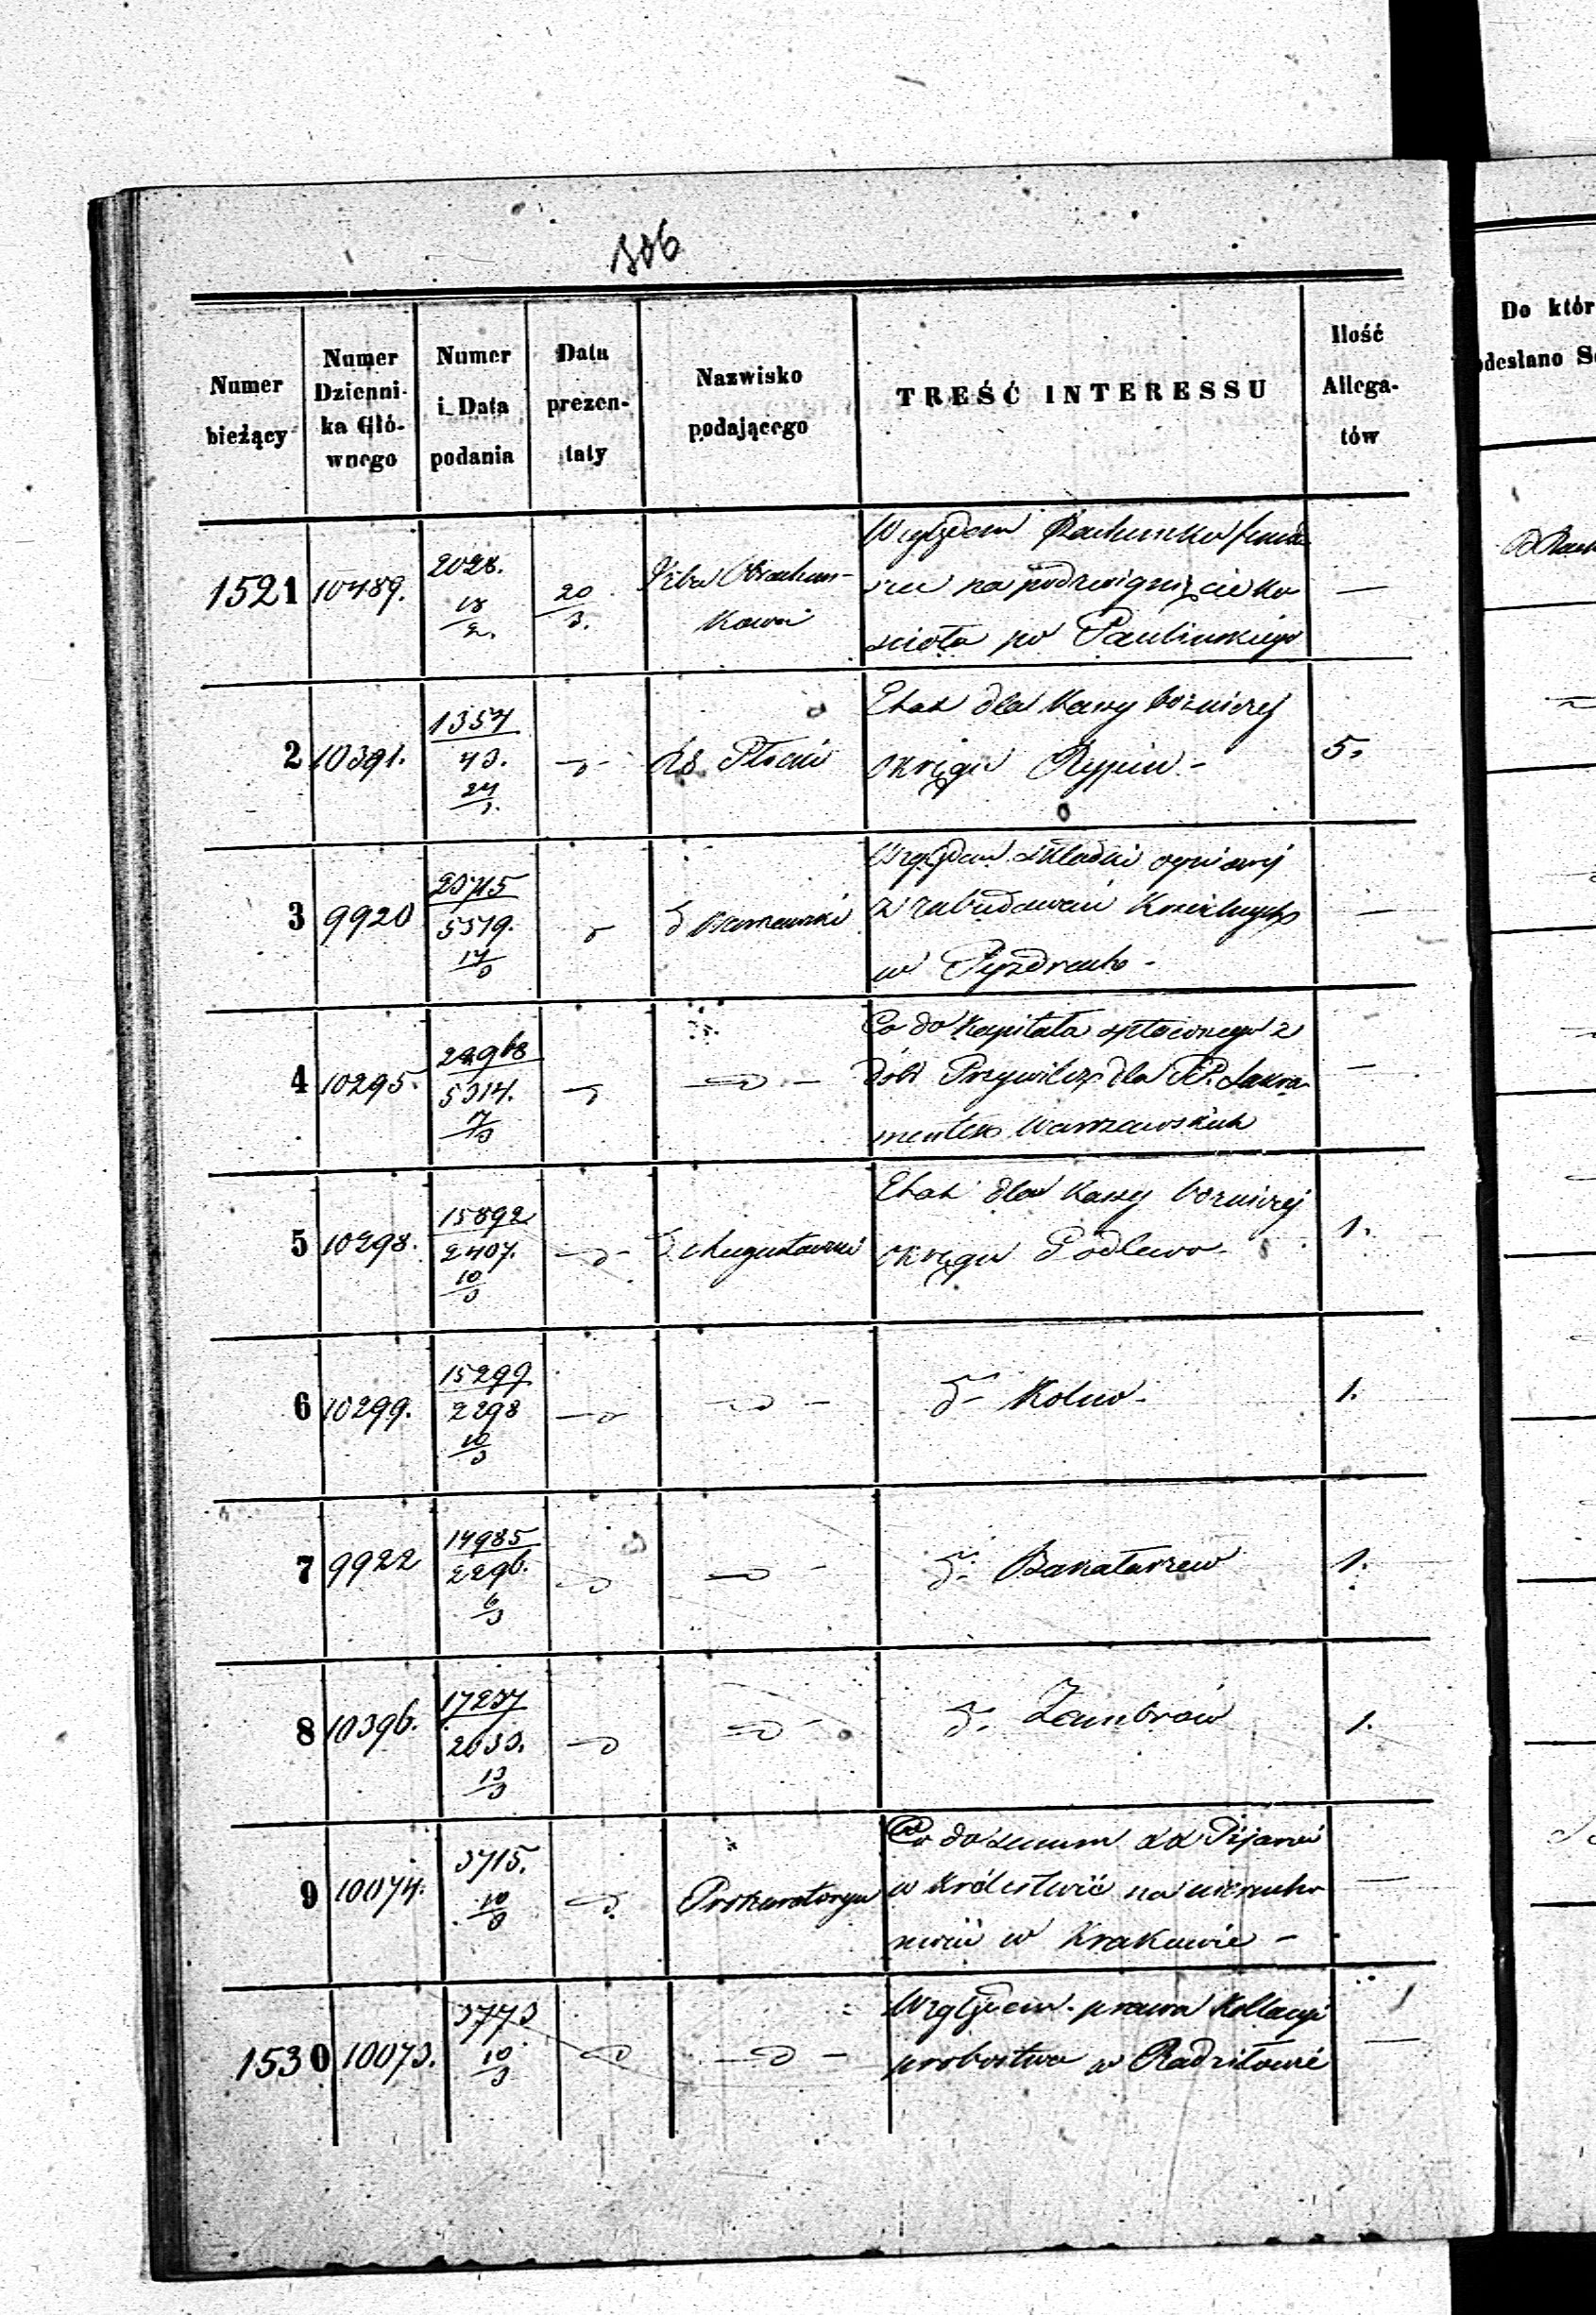 306
Numer bieżący
Numer Dzienni- ka Głó- wnego
Numer i Data podania
Data prezen- taty
Nazwisko podającego
TREŚĆ INTERESSU
Ilość Allega- tów
Do któr
odesłano S
1521 10489. 2028. 18/2. 20/3. Izba Obrachun- kowa
Względem Rachunku fundu
szu na podzwignięcie ko
scioła po Paulinskiego —
2 10391. 1357 43. 24/3. Rs Płocki
Etat dla Kassy bożniczej
okręgu Rypin - 5.
3 9920 20715 5579. 17/3 d Warszawski
Względem składki ogniowej
z zabudowań Kościelnych
w Pyzdrach - —
4 10295. 24968 5314. 7/3
Co do Kapitału spłaconego z
dóbr Przywilcz dla PP. Sakra-
mentek Warszawskich —
5 10298. 15892 2407. 10/3 d Augustowski
Etat dla Kassy bożniczej
okręgu 1.
6 10299. 15299 2298 10/3 d- Kolno - 1.
7 9922 14985 2296. 6/3 d- Bakałarzew 1.
8 10396. 17237 2633. 13/3 d. Zambrów 1.
9 10074. 3715. 10/3 d. Prokuratorya
Co do summ XX Pijarów
w Królestwie na nierucho
mości w Krakowie - —
1530 10073. 3773 10/3
Względem prawa Kollacyi
probostwa w Radziłowie —